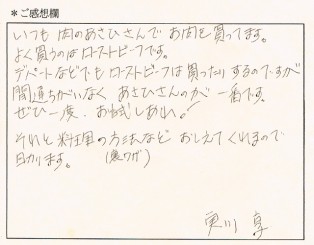 ＊ご感想欄
いつも 肉のあさひさんで お肉を買ってます。
よく買うのは ローストビーフです。
デパートなどでも ローストビーフは買ったりするのですが
間違ちがいなく あさひさんのが 一番です。
ぜひ一度、お試しあれ！
それと 料理の方法など おしえてくれるので
助かります。 (裏ワザ)